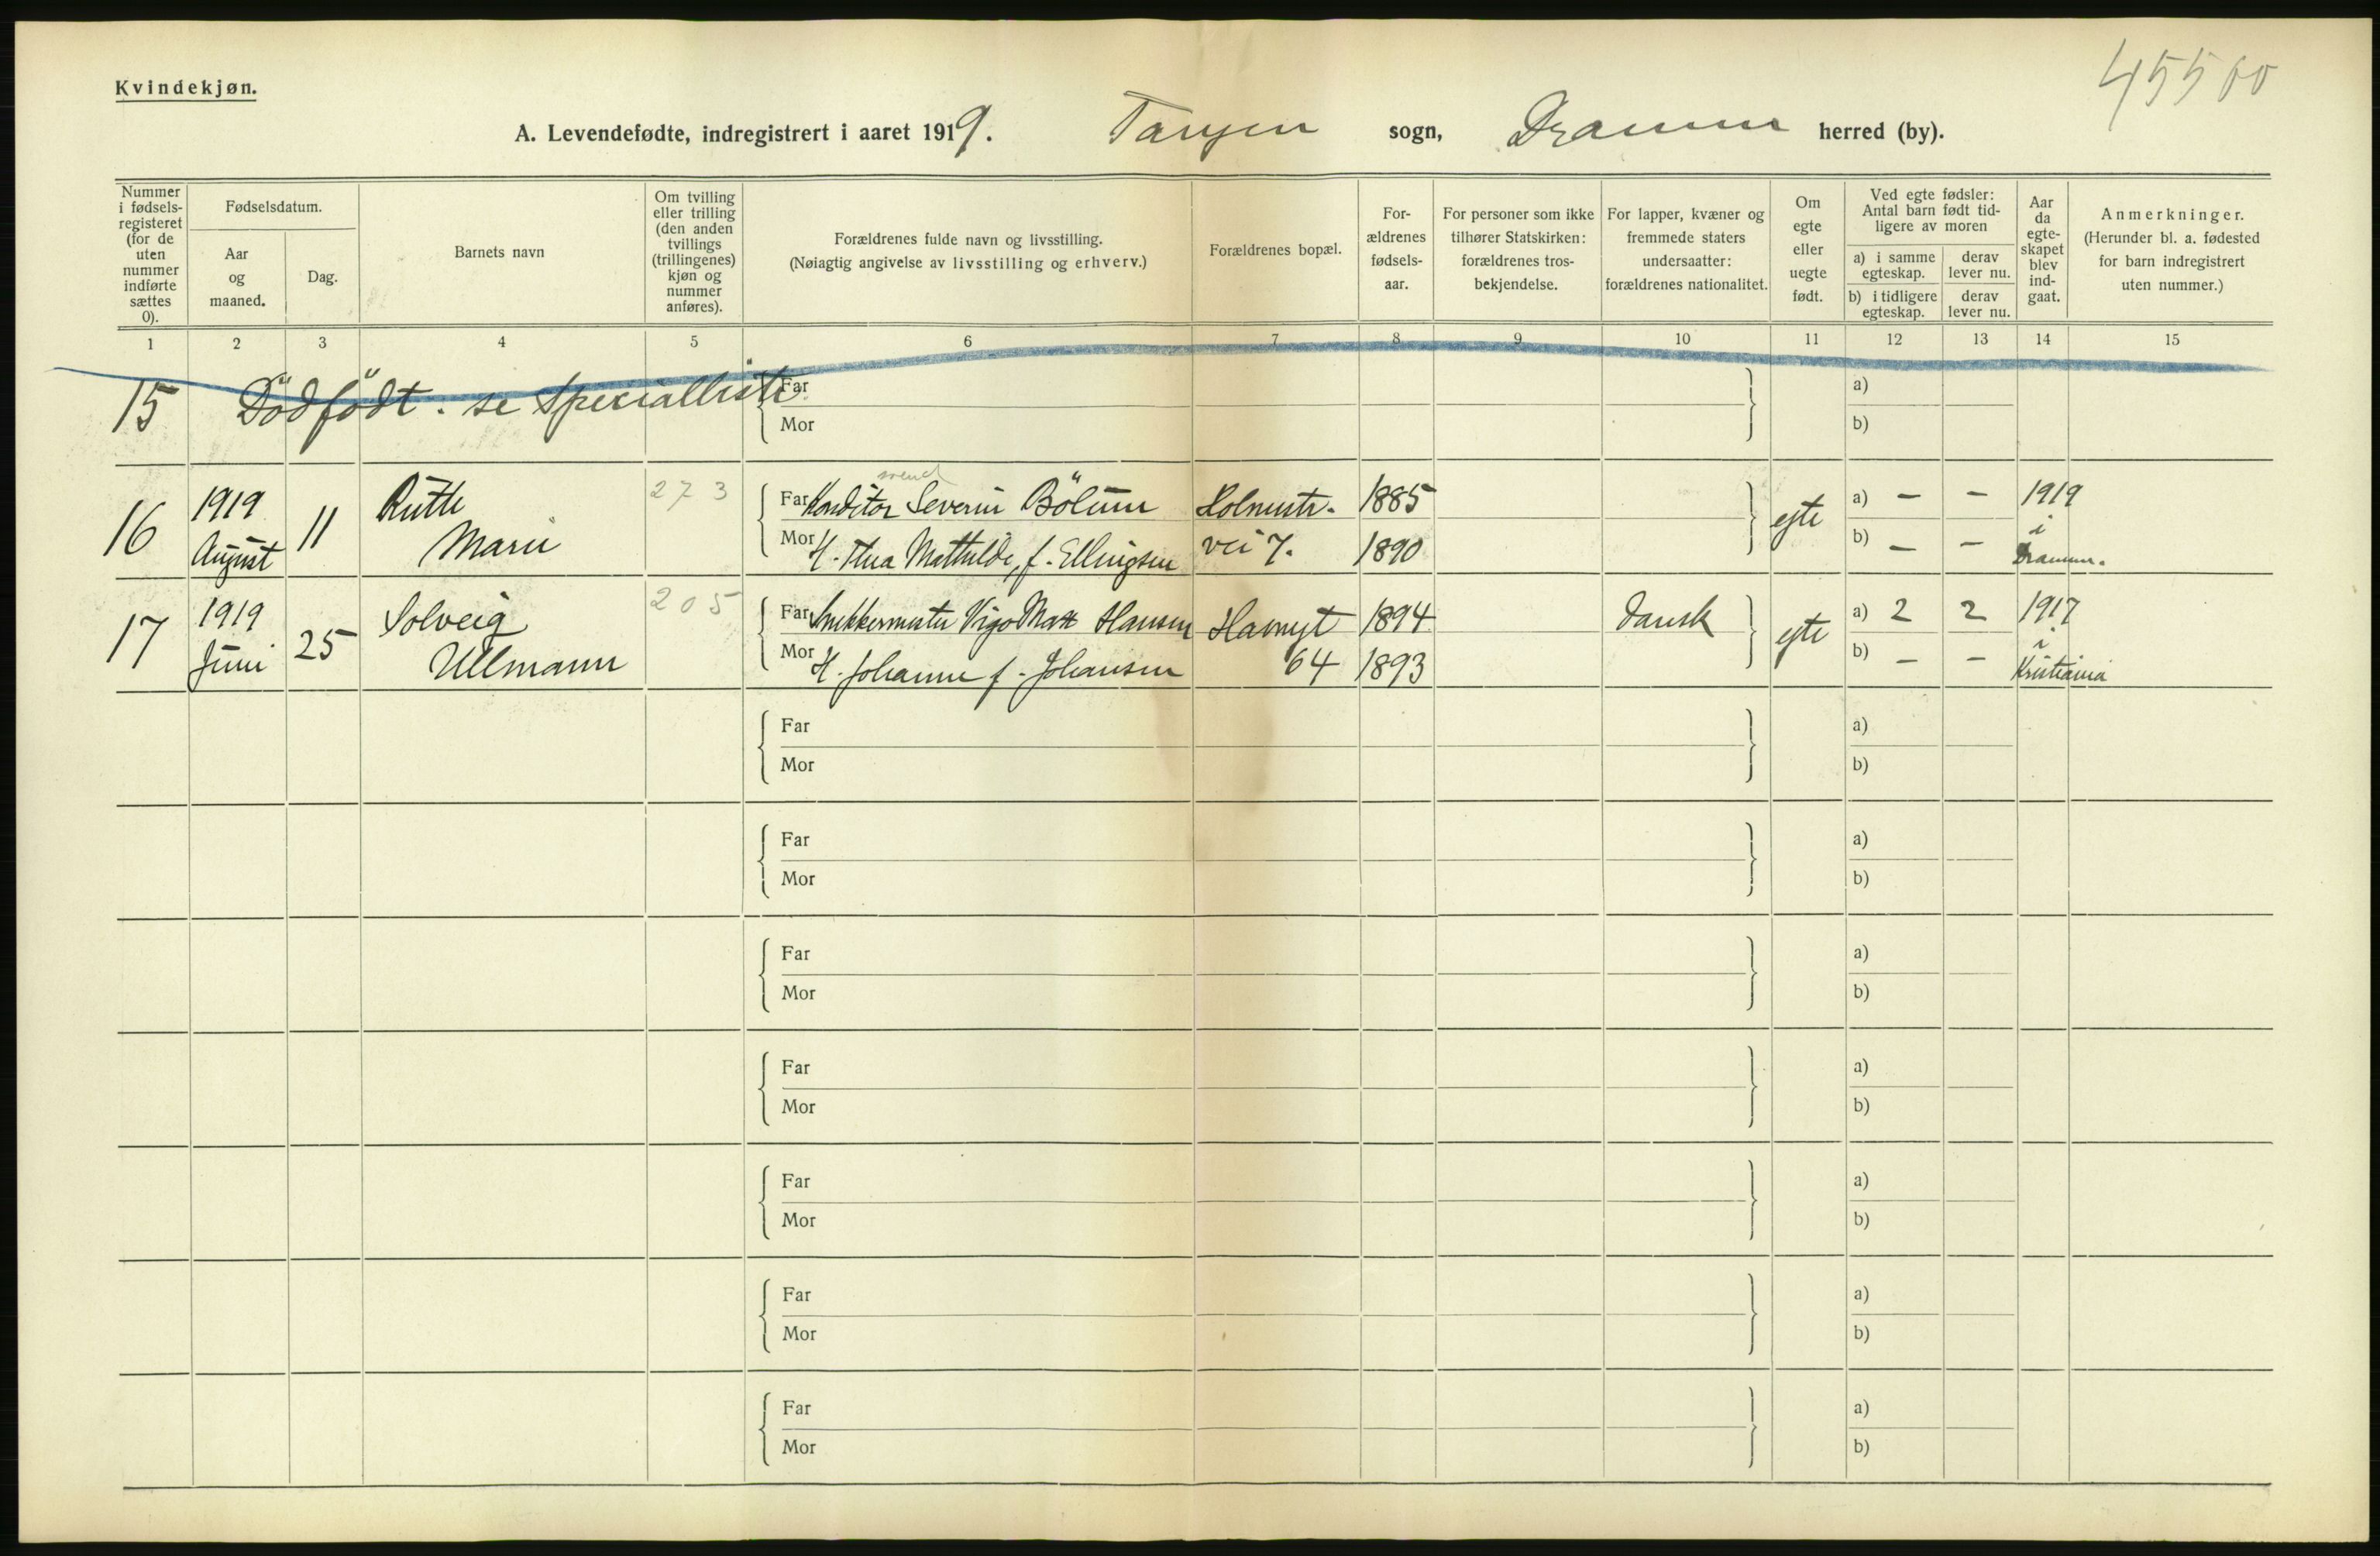 Kvindekjøn.
45500
A. Levendefødte, indregistrert i aaret 1919. Tangen sogn, Drammen herred (by).
Nummer i fødsels-registeret (for de uten nummer indførte sættes 0).
Fødselsdatum.
Aar og maaned.
Dag.
Barnets navn
Om tvilling eller trilling (den anden tvillings (trillingenes) kjøn og nummer anføres).
Forældrenes fulde navn og livsstilling.
(Nøiagtig angivelse av livsstilling og erhverv.)
Forældrenes bopæl.
For-ældrenes fødsels-aar.
For personer som ikke tilhører Statskirken: forældrenes tros-bekjendelse.
For lapper, kvæner og fremmede staters undersaatter: forældrenes nationalitet.
Om egte eller uegte født.
Ved egte fødsler: Antal barn født tid-ligere av moren
a) i samme egteskap.
derav lever nu.
b) i tidligere egteskap.
derav lever nu.
Aar da egte-skapet blev ind-gaat.
Anmerkninger.
(Herunder bl. a. fødested for barn indregistrert uten nummer.)
1 2 3 4 5 6 7 8 9 10 11 12 13 14 15
15 Dödfödt. se Specialliste Far a)
Mor b)
16 1919 August 11 Ruth Marie 273
svend
Far Konditor Severin Bölum Holmestr. 1885 egte a) – – 1919
Mor H. Thea Mathilde, f. Ellingsen vei 7. 1890 b) – – i Drammen.
17 1919 Juni 25 Solveig Ullmann 205
Far Snekkermester Vigo Max Hansen Havnegt 1894 Dansk egte a) 2 2 1917
Mor H. Johanne f. Johansen 64 1893 b) – – i Kristiania
Far a)
Mor b)
Far a)
Mor b)
Far a)
Mor b)
Far a)
Mor b)
Far a)
Mor b)
Far a)
Mor b)
Far a)
Mor b)